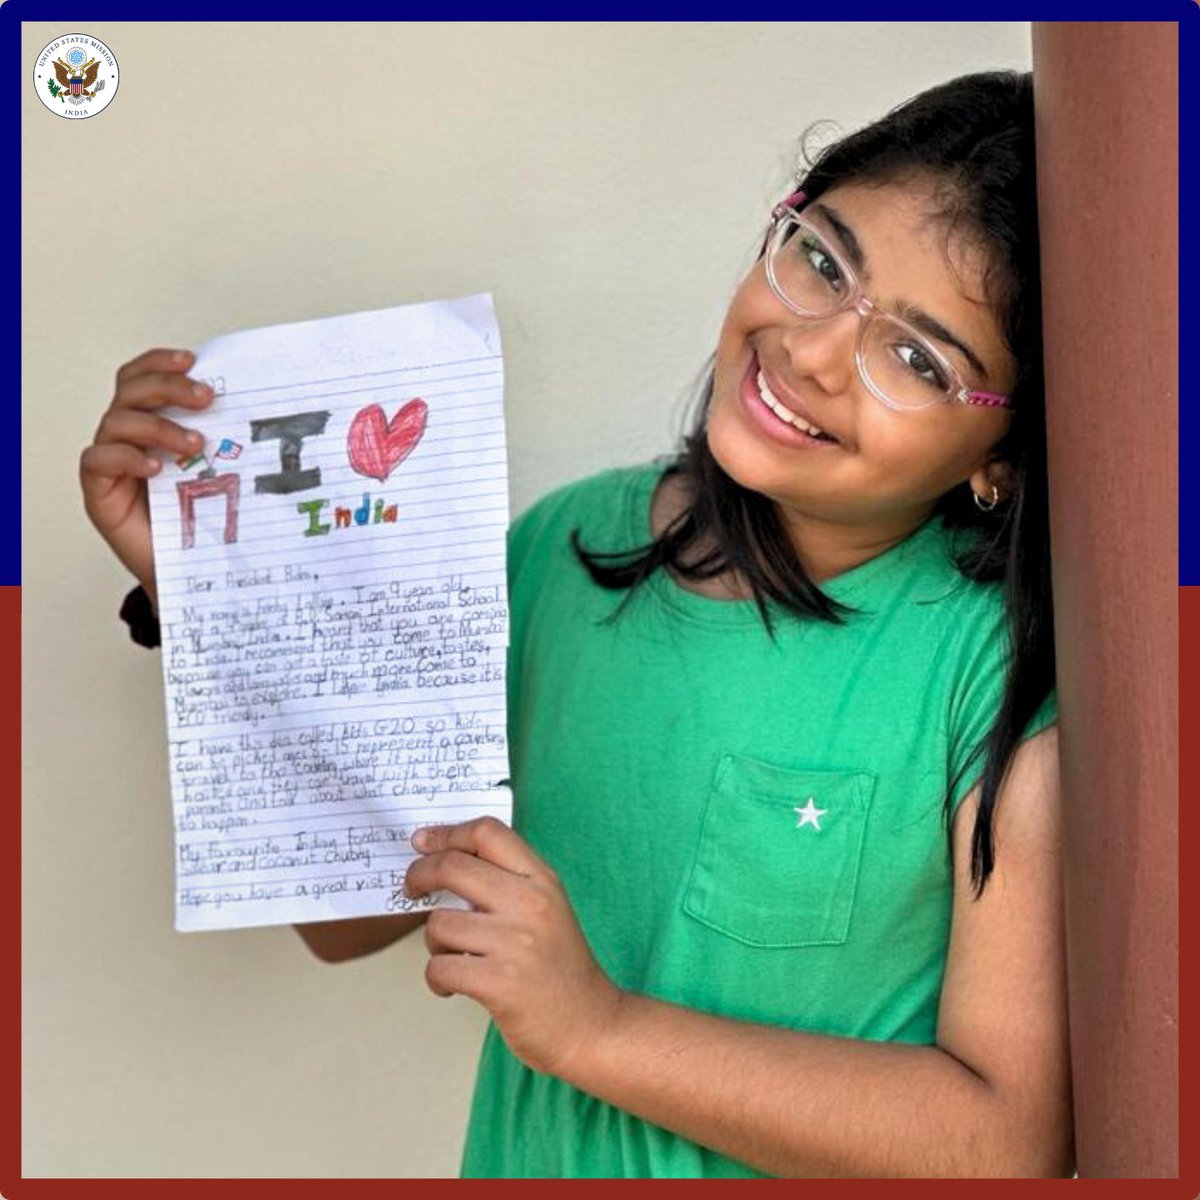 UNITED STATES MISSION
INDIA
I
India
Dear President Biden,
My name is . I am 9 years old.
I am a of International School
in Mumbai, India. I heard that you are coming
to India. I recommend that you come to Mumbai
because you can get a taste of culture, tastes,
flavors and languages and much more. Come to
Mumbai to explore. I like India because it is
ECO friendly.
I have this idea called kids G20 so kids
can be picked ages 15 represent a country
travel to the country where it will be
hosted and they can travel with their
parents and talk about what change need
to happen.
My favourite Indian foods are
and coconut Chutny.
Hope you have a great vist to